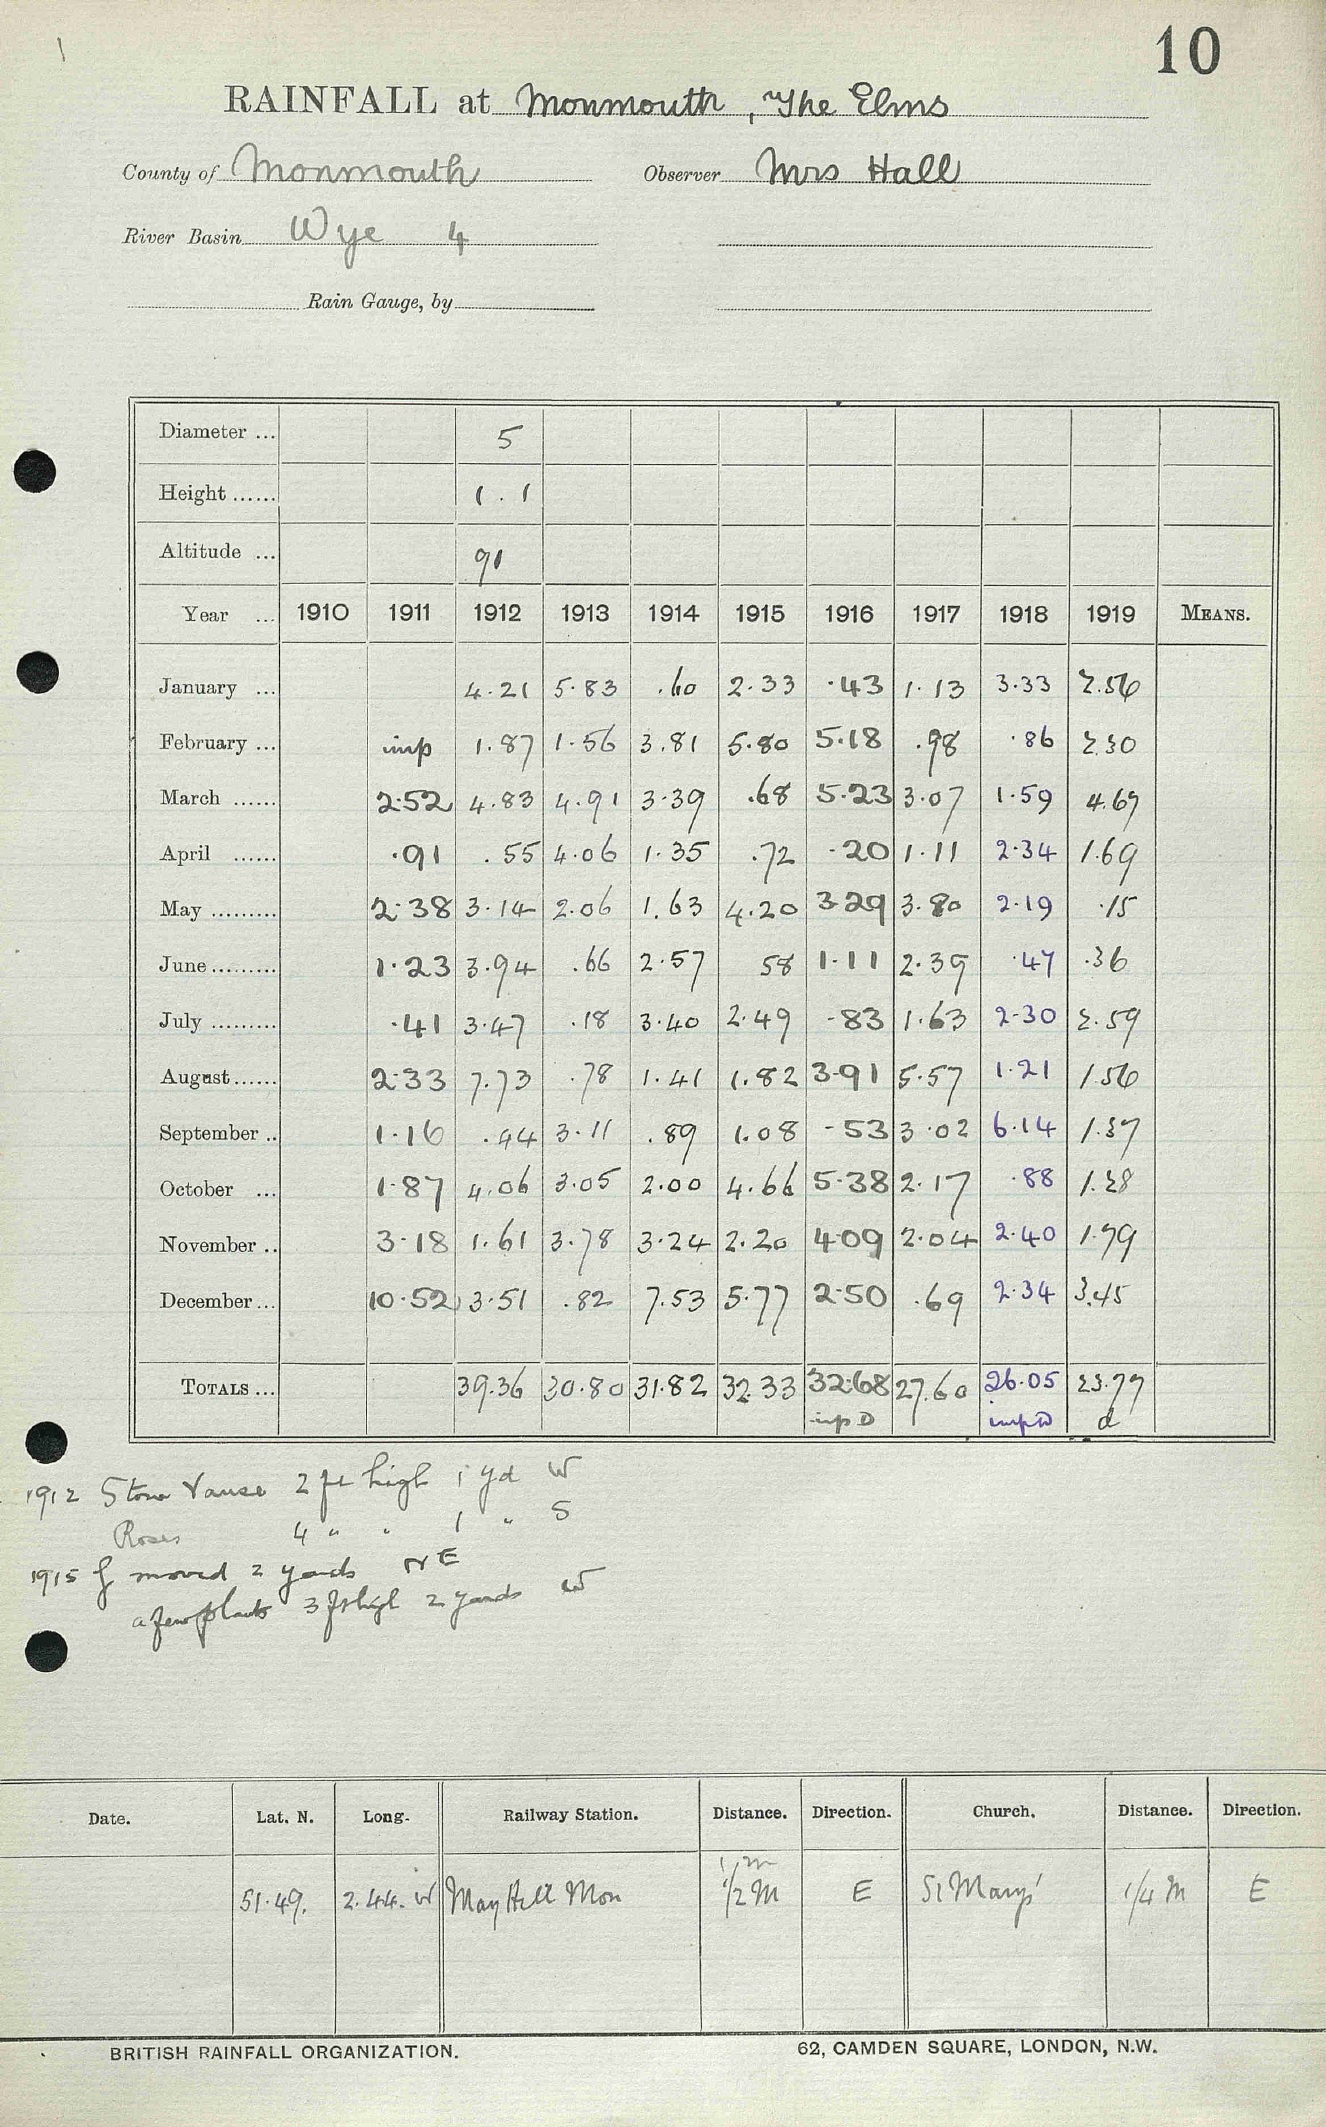 10
RAINFALL at Monmouth, The Elms
County of Monmouth Observer Mrs Hall
River Basin Wye 4
Rain Gauge, by
Diameter ... 5
Height ...... 1.1
Altitude ... 91
Year ... 1910 1911 1912 1913 1914 1915 1916 1917 1918 1919 MEANS.
January ... 4.21 5.83 .60 2.33 .43 1.13 3.33 2.56
February ... imp 1.87 1.56 3.81 5.80 5.18 .98 .86 2.30
March ...... 2.52 4.83 4.91 3.39 .68 5.23 3.07 1.59 4.67
April ...... .91 .55 4.06 1.35 .72 .20 1.11 2.34 1.69
May ......... 2.38 3.14 2.06 1.63 4.20 3.29 3.80 2.19 .15
June ......... 1.23 3.94 .66 2.57 58 1.11 2.39 .47 .36
July ......... .41 3.47 .18 3.40 2.49 .83 1.63 2.30 2.59
August ...... 2.33 7.73 .78 1.41 1.82 3.91 5.57 1.21 1.56
September .. 1.16 .44 3.11 .89 1.08 .53 3.02 6.14 1.37
October ... 1.87 4.06 3.05 2.00 4.66 5.38 2.17 .88 1.28
November .. 3.18 1.61 3.78 3.24 2.20 4.09 2.04 2.40 1.79
December ... 10.52 3.51 .82 7.53 5.77 2.50 .69 2.34 3.45
TOTALS ... 39.36 30.80 31.82 32.33 32.68 27.60 26.05 23.77
imp D imp D d
1912 Stone Vause 2 ft high 1 yd W
Roses 4 " " 1 " S
1915 g moved 2 yards NE
a few plants 3 ft high 2 yards W
Date. Lat. N. Long. Railway Station. Distance. Direction. Church. Distance. Direction.
1/2 m
51.49. 2.44. W May Hill Mon 1/2 M E St Mary's 1/4 M E
BRITISH RAINFALL ORGANIZATION. 62, CAMDEN SQUARE, LONDON, N.W.